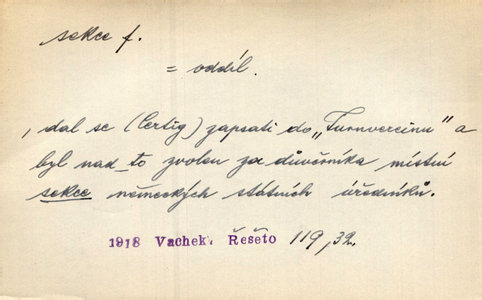 sekce f.
= oddíl.
, dal se (Čertig) zapsati do „Turnvereinu" a
byl nad_to zvolen za důvěrníka místní
sekce německých státních úředníků.
1918 Vachek, Řešeto 119,32.